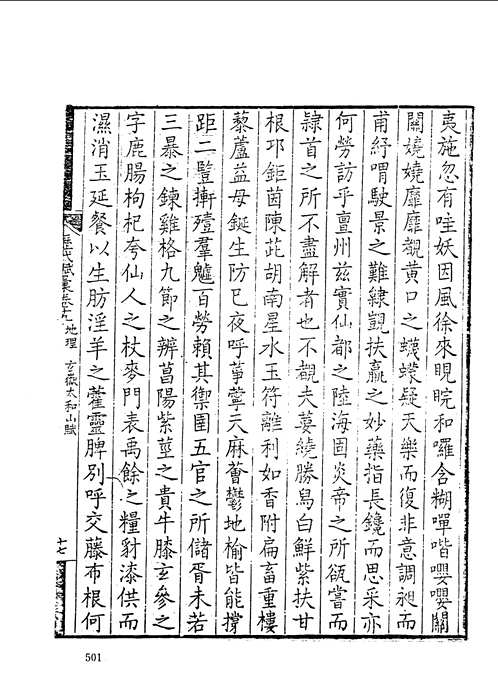 夷施忽有哇妖因風徐來睍睆和囉含糊嘽喈嚶嚶關
關嬈嬈靡靡覯黃口之蠛蠓疑天樂而復非意調昶而
甫紓喟駛景之難綈覬扶羸之妙藥指長鑱而思采亦
何勞訪乎亶州兹實仙都之陸海固炎帝之所㼌嘗而
隷首之所不盡解者也不覯夫葽繞勝舄白鮮紫扶甘
根邛鉅茵陳茈胡南星水玉符離利如香附扁畜重樓
藜蘆益母鋋生防已夜呼葶藶天麻薈鬱地榆皆能撐
距二豎摲殪羣魖百勞賴其禦圉五官之所儲胥未若
三暴之鍊雞格九節之辨菖陽紫荁之貴牛膝玄參之
字鹿腸枸杞夸仙人之杖麥門表禹餘之糧豺漆供而
濕消玉延餐以生肪淫羊之藿靈脾別呼交藤布根何
歷代賦彙卷十九 地理 玄嶽太和山賦
十七
501